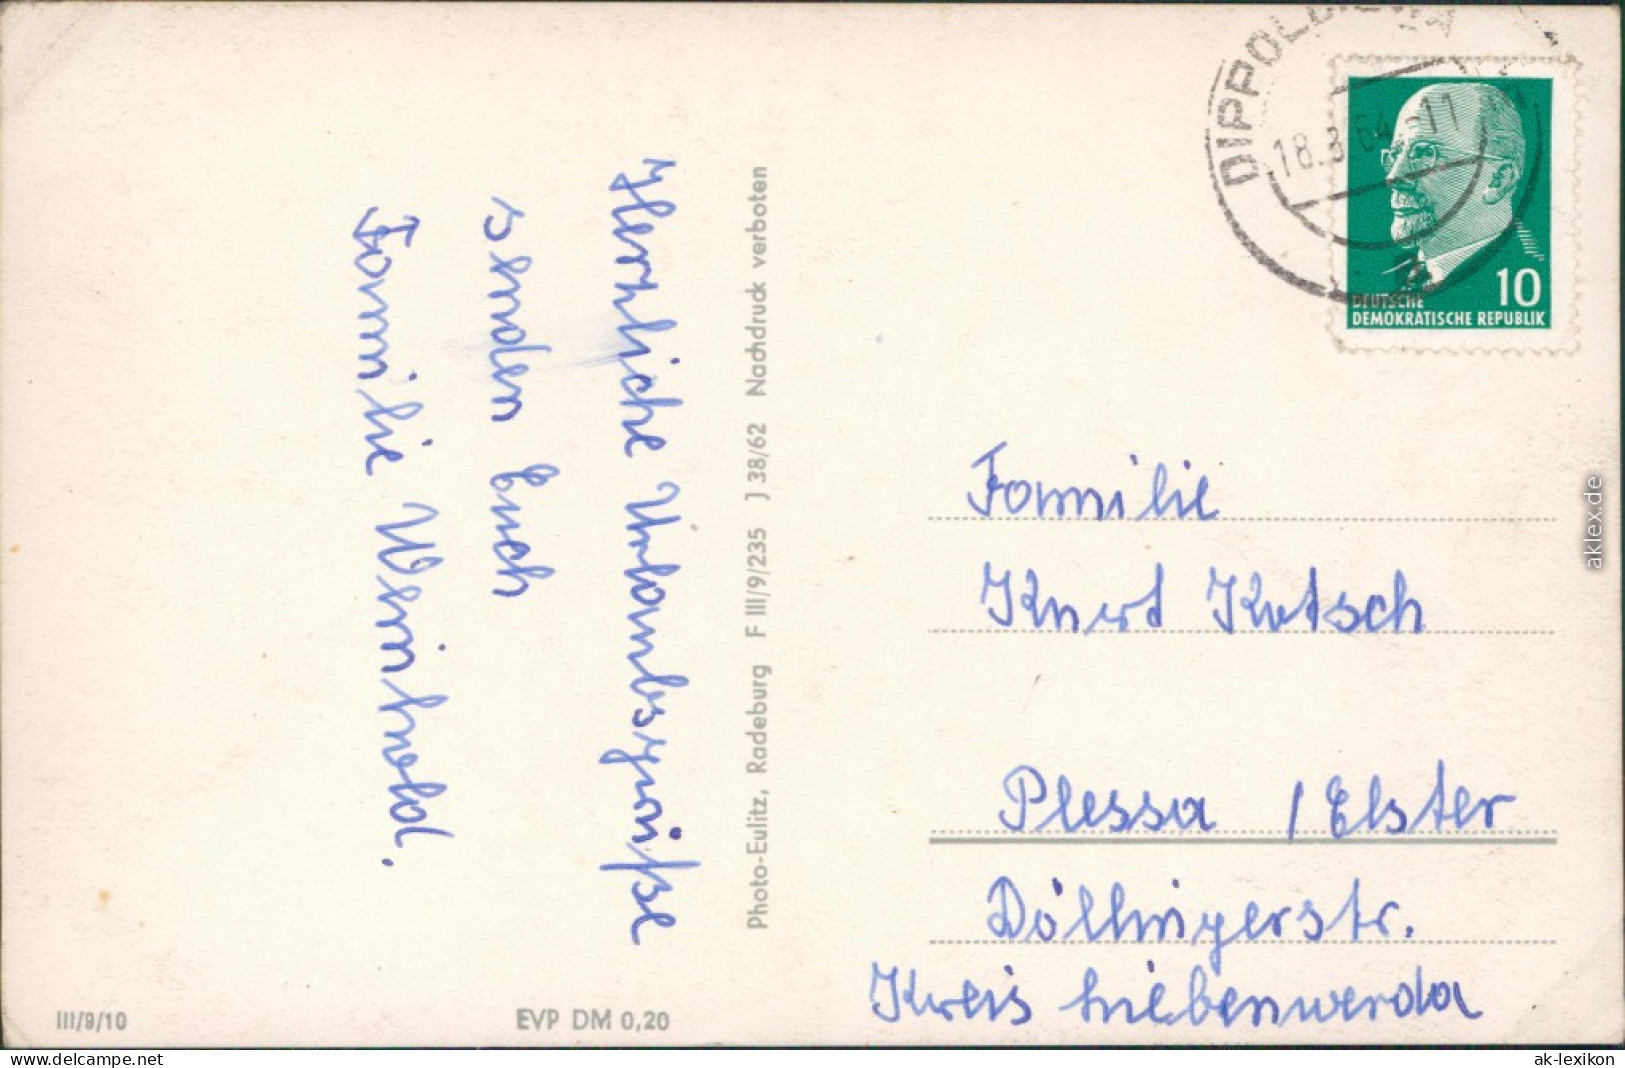 Herzliche Urlaubsgrüße
senden Euch
Familie Weinhold.
Photo-Eulitz, Radeburg F III/9/235 J 38/62 Nachdruck verboten
III/9/10
EVP DM 0,20
18.3.64-11
10
DEUTSCHE
DEMOKRATISCHE REPUBLIK
Familie
Kurt Kotsch
Plessa /Elster
Döllingerstr.
Kreis Liebenwerda
aklex.de
www.delcampe.net
ak-lexikon